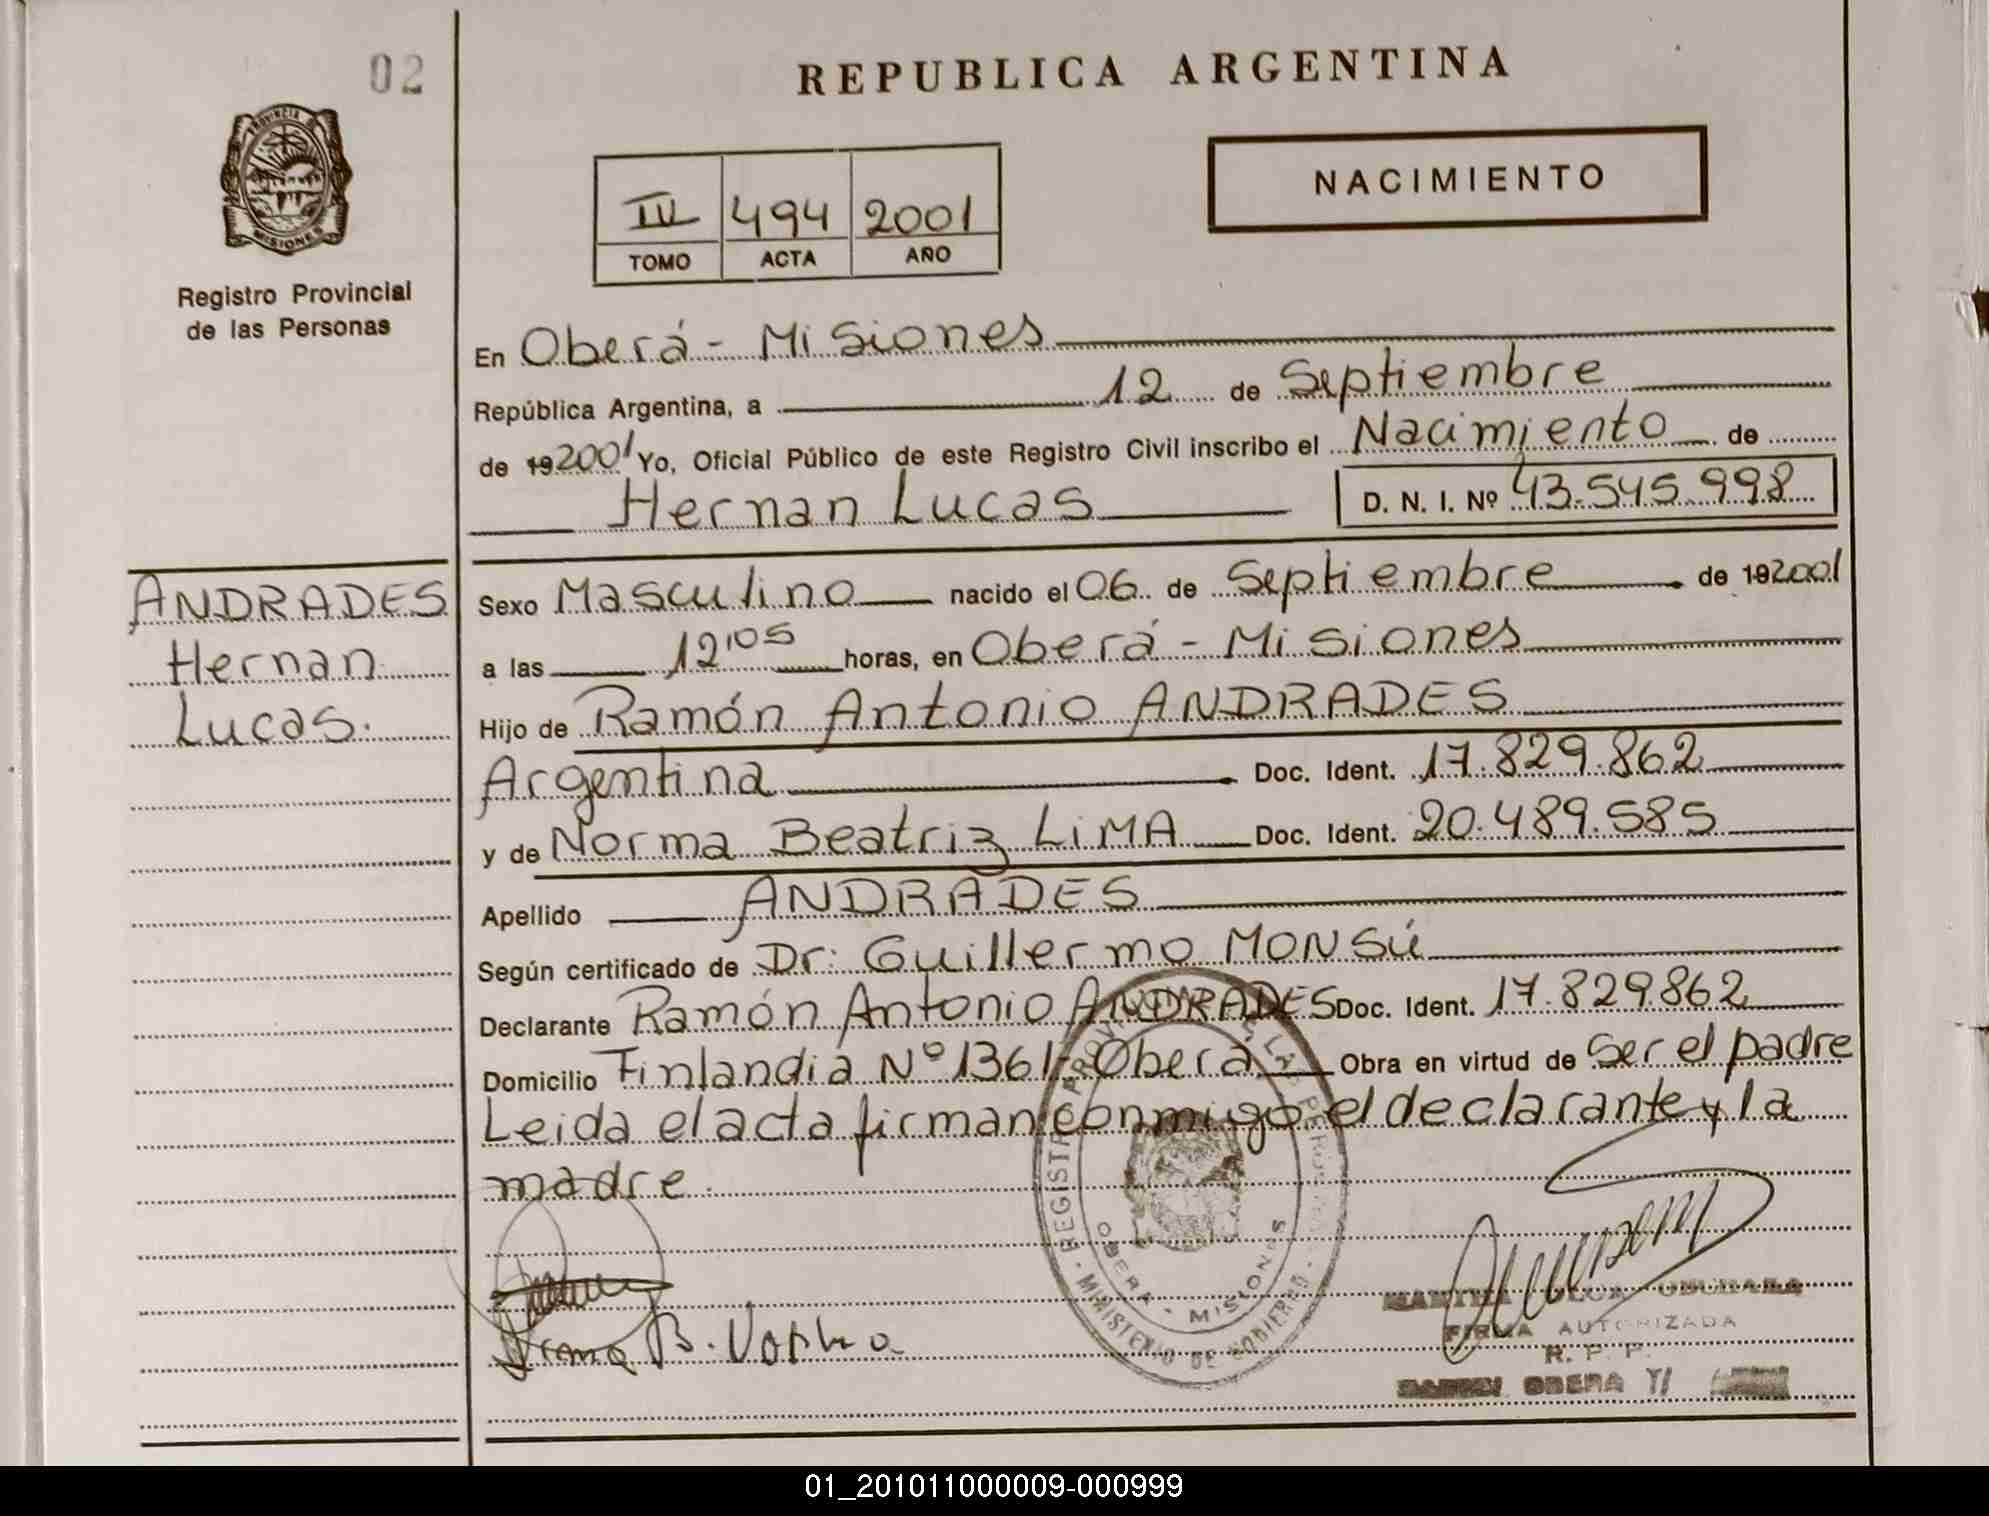 02
REPUBLICA ARGENTINA
NACIMIENTO
IV 494 2001
TOMO ACTA AÑO
PROVINCIA DE
MISIONES
Registro Provincial
de las Personas
En Oberá - Misiones
República Argentina, a 12 de Septiembre
de 192001 Yo, Oficial Público de este Registro Civil inscribo el Nacimiento de
Hernan Lucas D. N. I. Nº 43.545.998
ANDRADES
Hernan
Lucas.
Sexo Masculino nacido el 06 de Septiembre de 192001
a las 12'05 horas, en Oberá - Misiones
Hijo de Ramón Antonio ANDRADES
Argentina Doc. Ident. 17.829.862
y de Norma Beatriz LiMA Doc. Ident. 20.489.585
Apellido ANDRADES
Según certificado de Dr: Guillermo MONSÚ
Declarante Ramón Antonio ANDRADES Doc. Ident. 17.829.862
Domicilio Finlandia Nº 1361- Oberá Obra en virtud de Ser el padre
Leida el acta firman conmigo el declarante y la
madre.
OBERA - MISIONES
MINISTERIO DE GOBIERNO
FIRMA AUTORIZADA
R. P. P.
OBERA
01_201011000009-000999